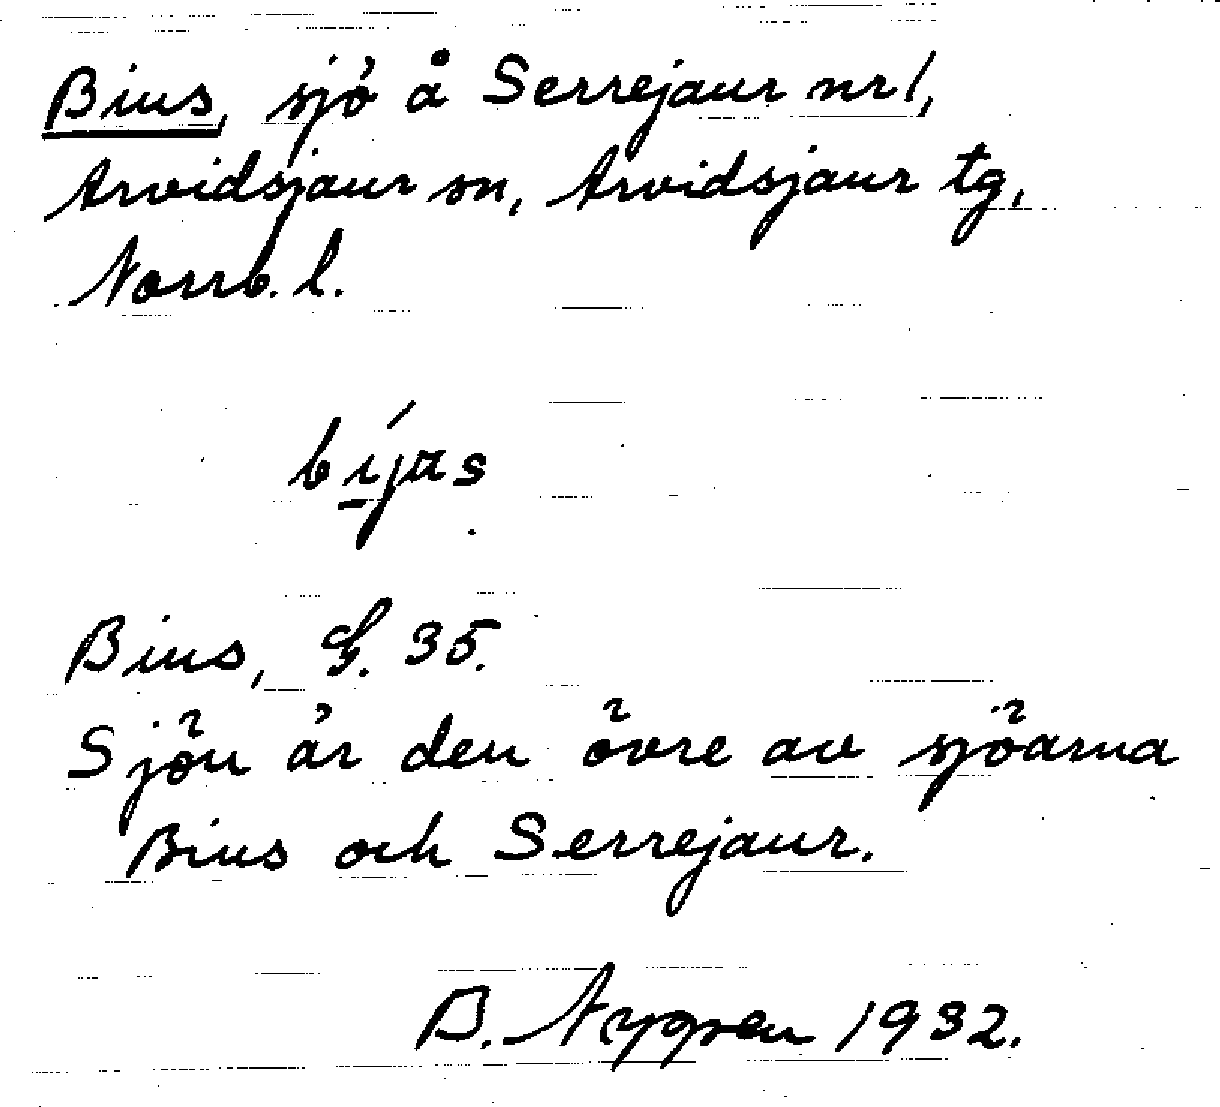 Bius, sjö å Serrejaur nr 1,
Arvidsjaur sn, Arvidsjaur tg,
Norrb. l.
bíjas
Bius, G. 35.
Sjön är den övre av sjöarna
Bius och Serrejaur.
B. Nygren 1932.